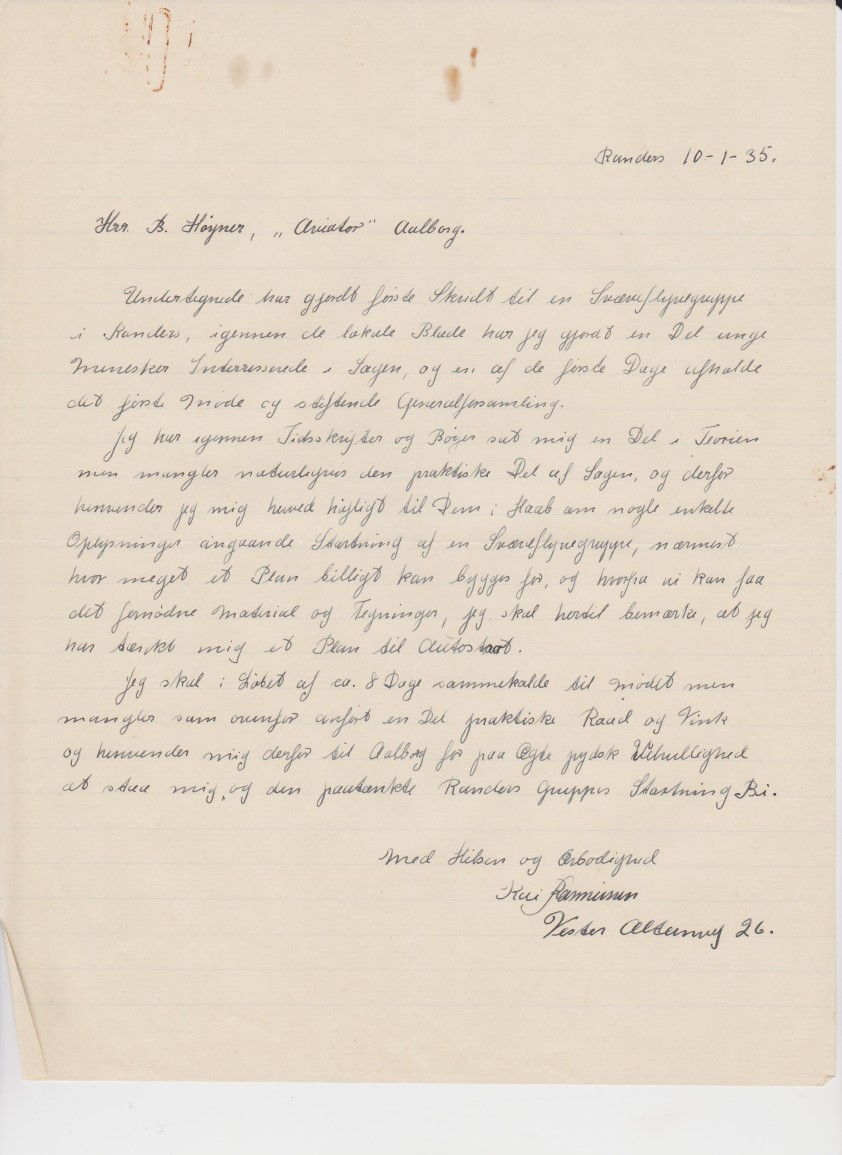 Randers 10-1-35.
Hrr. B. Høyner, „Aviator" Aalborg.
Undertegnede har gjordt første Skridt til en Svæveflyvegruppe
i Randers, igennen de lokale Blade har jeg gjordt en Del unge
Menesker Interresserede i Sagen, og en af de første Dage afholde
det første Møde og stiftende Generalforsamling.
Jeg har igennen Tidsskrifter og Bøger sat mig en Del i Teorien
men mangler naturligvis den praktiske Del af Sagen, og derfor
henvender jeg mig herved høfligt til Dem i Haab om nogle enkelte
Oplysninger angaande Startning af en Svæveflyvegruppe, nærmest
hvor meget et Plan billigt kan bygges for, og hvorfra vi kan faa
det fornødne Material og Tegninger, jeg skal hertil bemærke, at jeg
har tænkt mig et Plan til Autostart.
Jeg skal i Løbet af ca. 8 Dage sammekalde til Mødet men
mangler som ovenfor anført en Del praktiske Raad og Vink
og henvender mig derfor til Aalborg for paa Ægte jydsk Velvillighed
at staa mig, og den paatænkte Randers Gruppes Startning Bi.
Med Hilsen og Ærbødighed
Kai Rasmussen
Vester Altanvej 26.